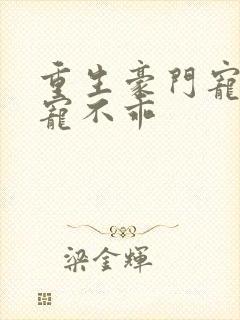 重生豪門寵
寵不乖
梁金輝